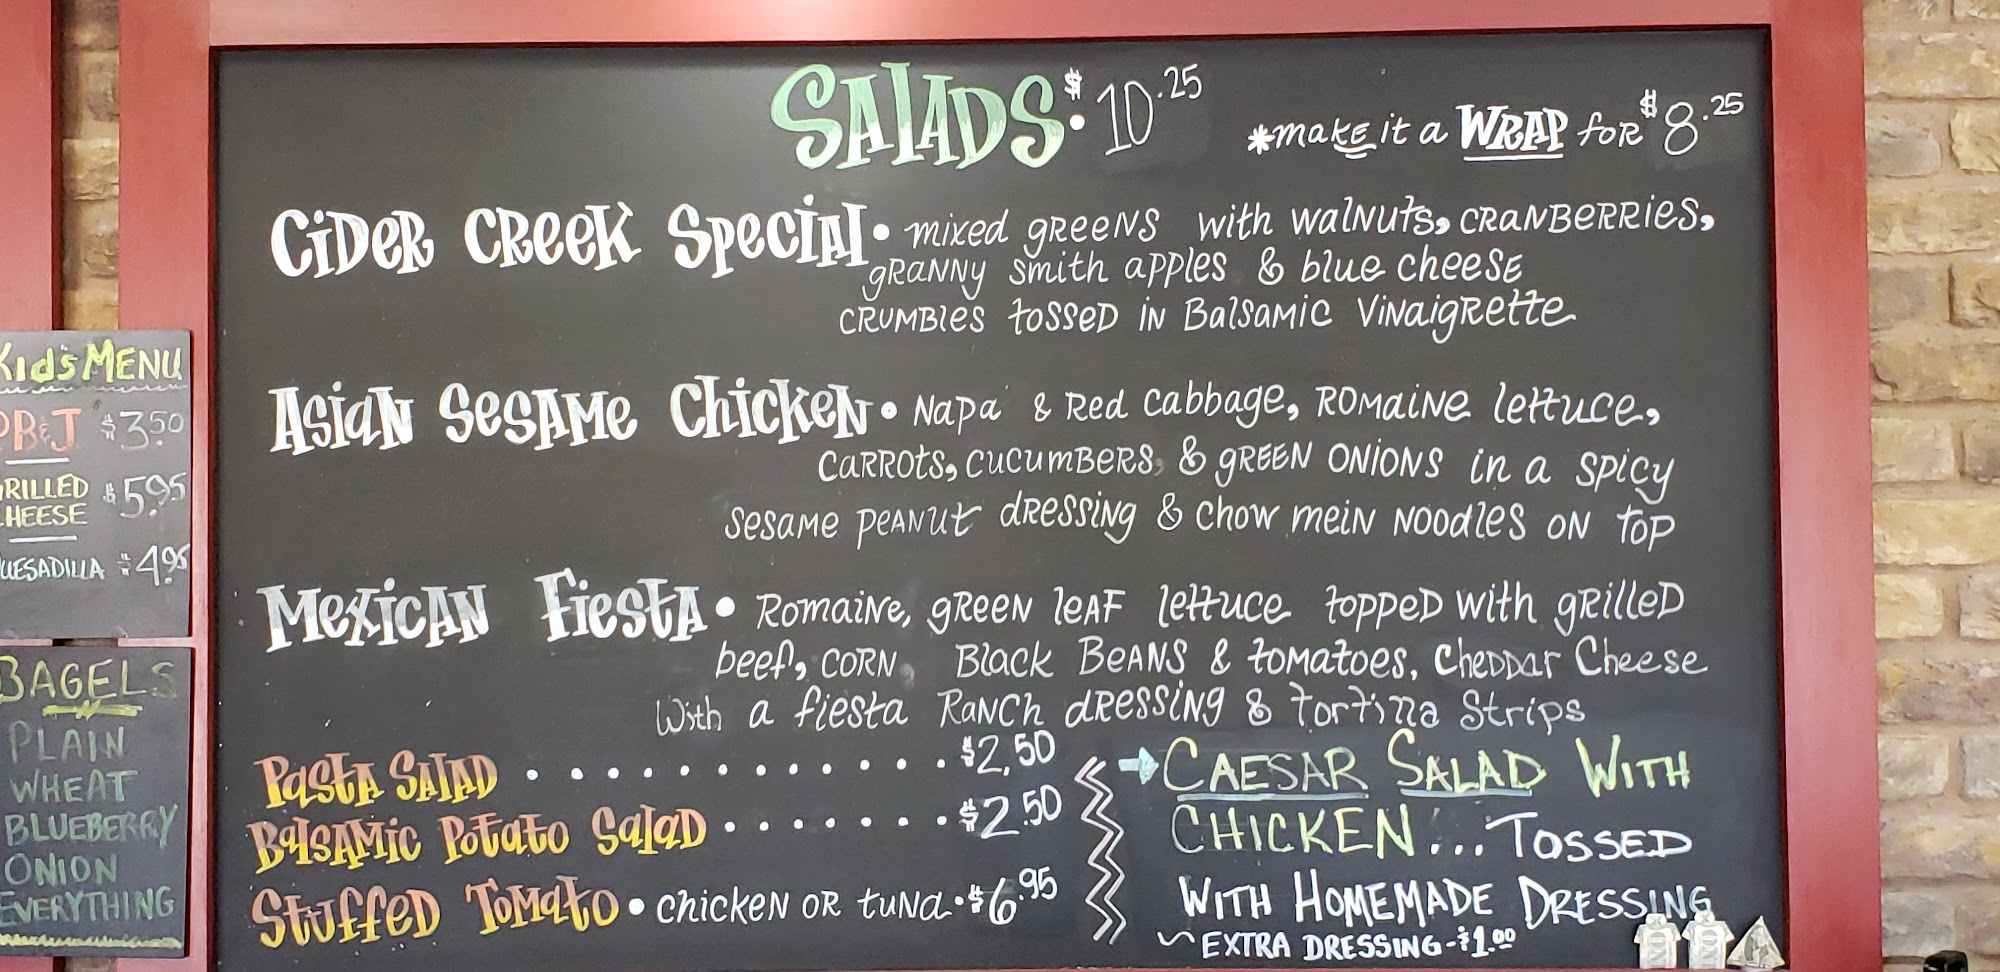 SALADS • $10.25
*make it a WRAP for $8.25
CiDER CREEK Special • mixed greens with walnuts, CRANBERRies,
gRANNY smith apples & blue cheese
CRUMBles tossed in Balsamic Vinaigrette
Asian Sesame Chicken • Napa & Red cabbage, Romaine lettuce,
carrots, cucumbers, & green onions in a spicy
sesame peanut dressing & chow mein noodles on top
Mexican Fiesta • Romaine, green leaf lettuce topped with grilled
beef, corn, Black Beans & tomatoes, Cheddar Cheese
With a fiesta Ranch dressing & tortilla Strips
Pasta Salad . . . . . . . . . . . . . . $2.50
Balsamic Potato Salad . . . . . . . . $2.50
Stuffed Tomato • chicken or tuna • $6.95
CAESAR SALAD WITH
CHICKEN... TOSSED
WITH HOMEMADE DRESSING
~ EXTRA DRESSING - $1.00
Kid's MENU
PB&J $3.50
RILLED
HEESE $5.95
UESADILLA $4.95
BAGELS
PLAIN
WHEAT
BLUEBERRY
ONION
EVERYTHING